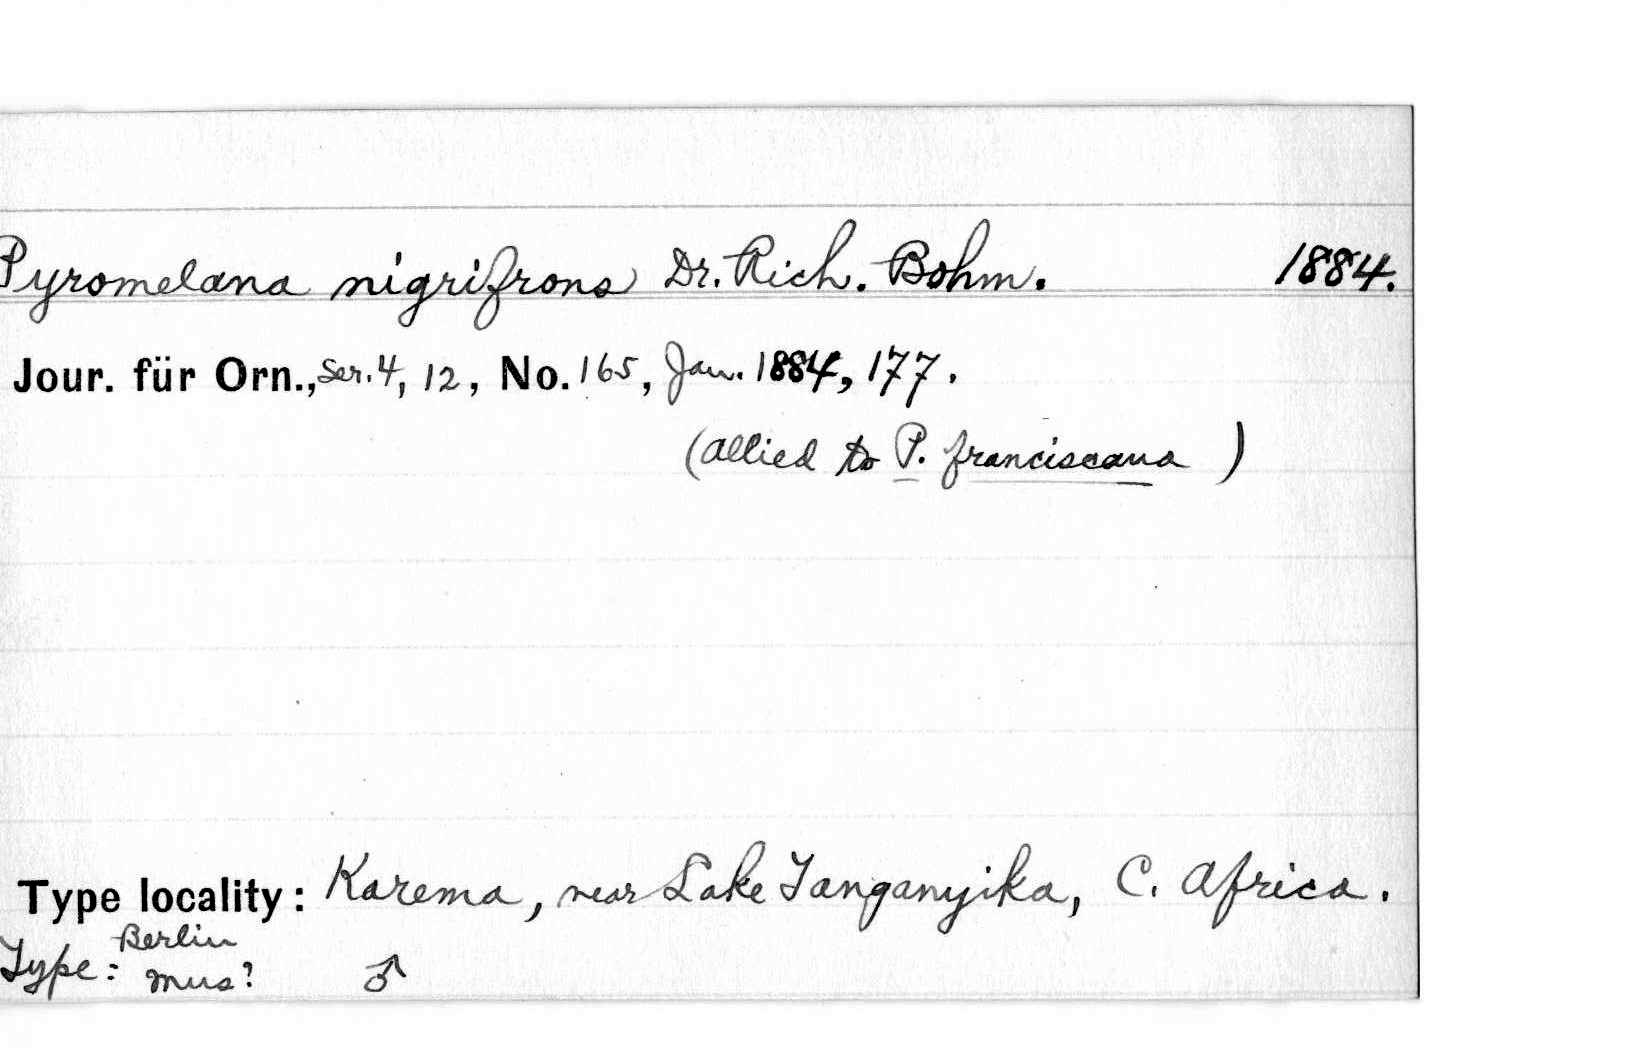 Pyromelana nigrifrons Dr. Rich. Bohm. 1884.
Jour. für Orn., ser. 4, 12, No. 165, Jan. 1884, 177.
(allied to P. franciscana )
Type locality: Karema, near Lake Tanganyika, C. Africa.
Type: Berlin
Mus? ♂